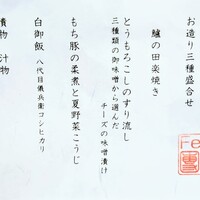 お造り三種盛合せ
鱸の田楽焼き
とうもろこしのすり流し
三種類の御味噌から選んだ
チーズの味噌漬け
もち豚の柔煮と夏野菜こうじ
白御飯 八代目儀兵衛コシヒカリ
漬物 汁物
re